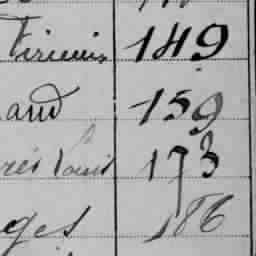 Firmin 149
and 159
rés Louis 173
ges 186